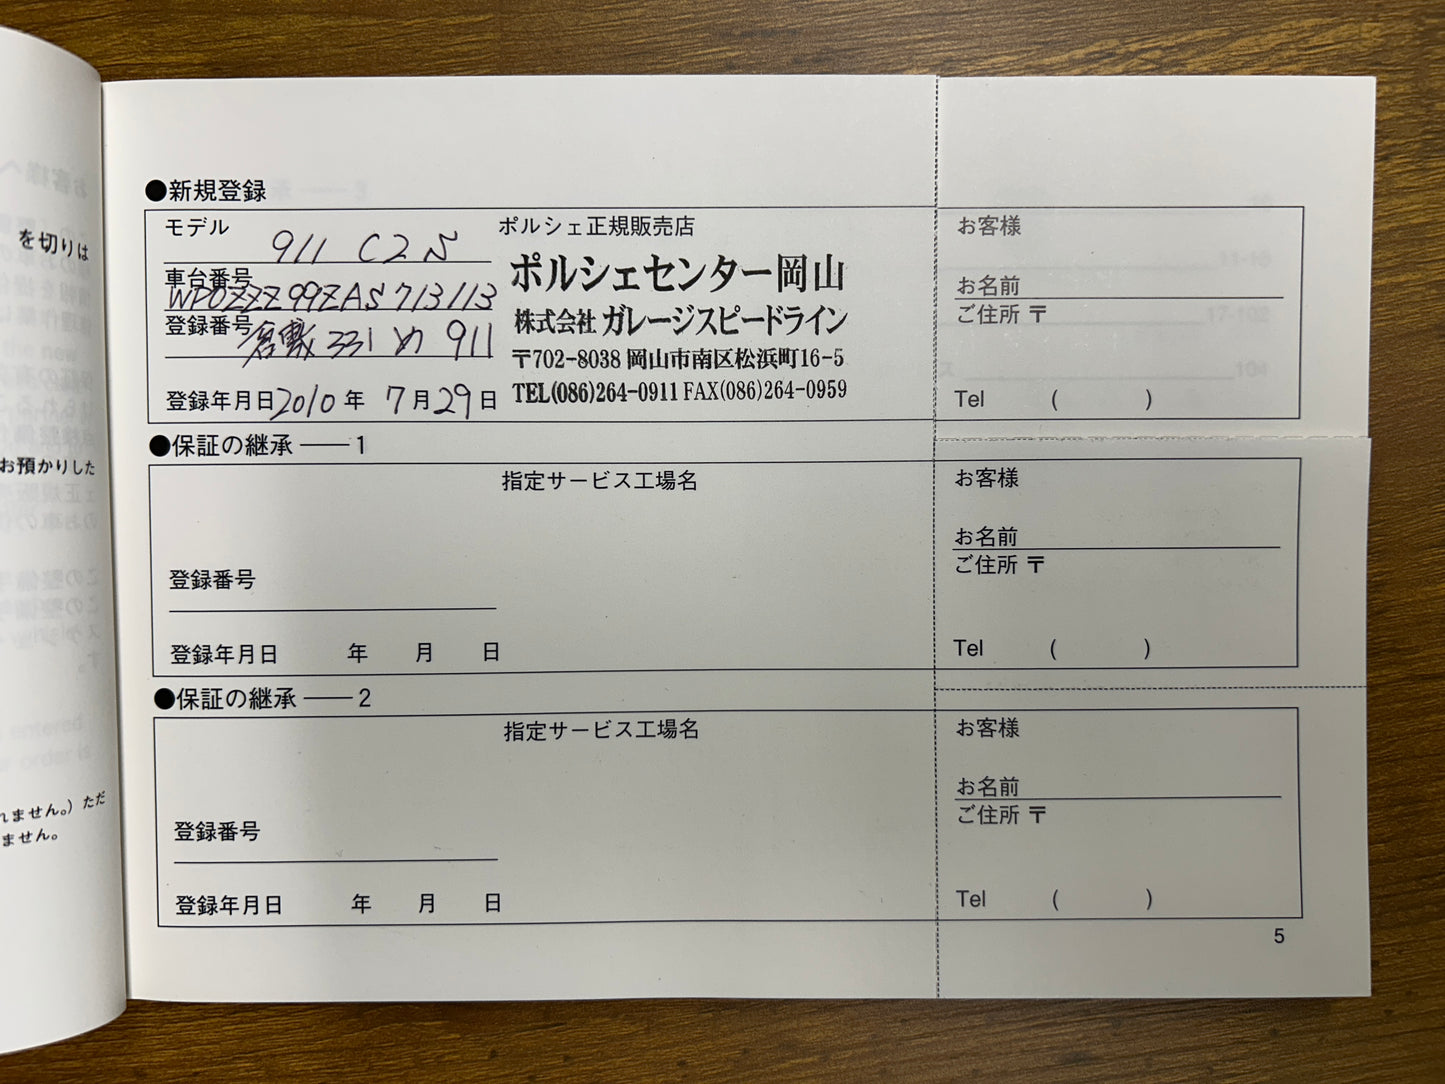 を切りは
お預かりした
れません。）ただ
ません。
●新規登録
モデル 911 C2S
車台番号 WP0ZZZ99ZAS713113
登録番号 倉敷 331 め 911
登録年月日 2010 年 7 月 29 日
ポルシェ正規販売店
ポルシェセンター岡山
株式会社 ガレージスピードライン
〒702-8038 岡山市南区松浜町16-5
TEL(086)264-0911 FAX(086)264-0959
お客様
お名前
ご住所 〒
Tel ( )
●保証の継承 ── 1
指定サービス工場名
登録番号
登録年月日 年 月 日
お客様
お名前
ご住所 〒
Tel ( )
●保証の継承 ── 2
指定サービス工場名
登録番号
登録年月日 年 月 日
お客様
お名前
ご住所 〒
Tel ( )
5